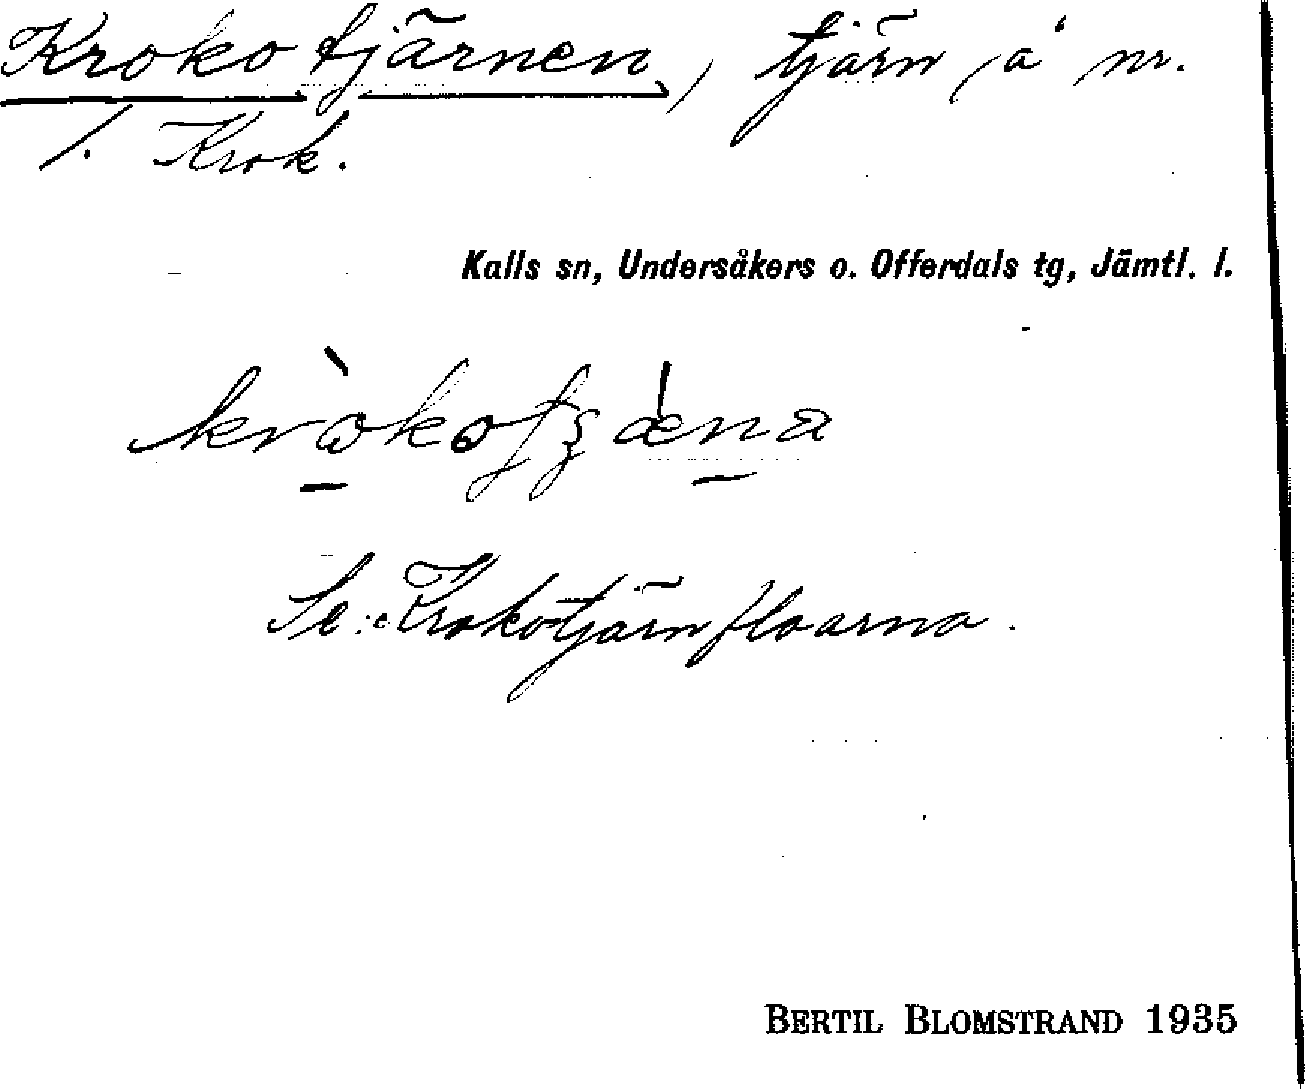 Krokotjärnen, tjärn å nr.
1. Krok.
Kalls sn, Undersåkers o. Offerdals tg, Jämtl. l.
Se: Krokotjärnfloarna.
BERTIL BLOMSTRAND 1935